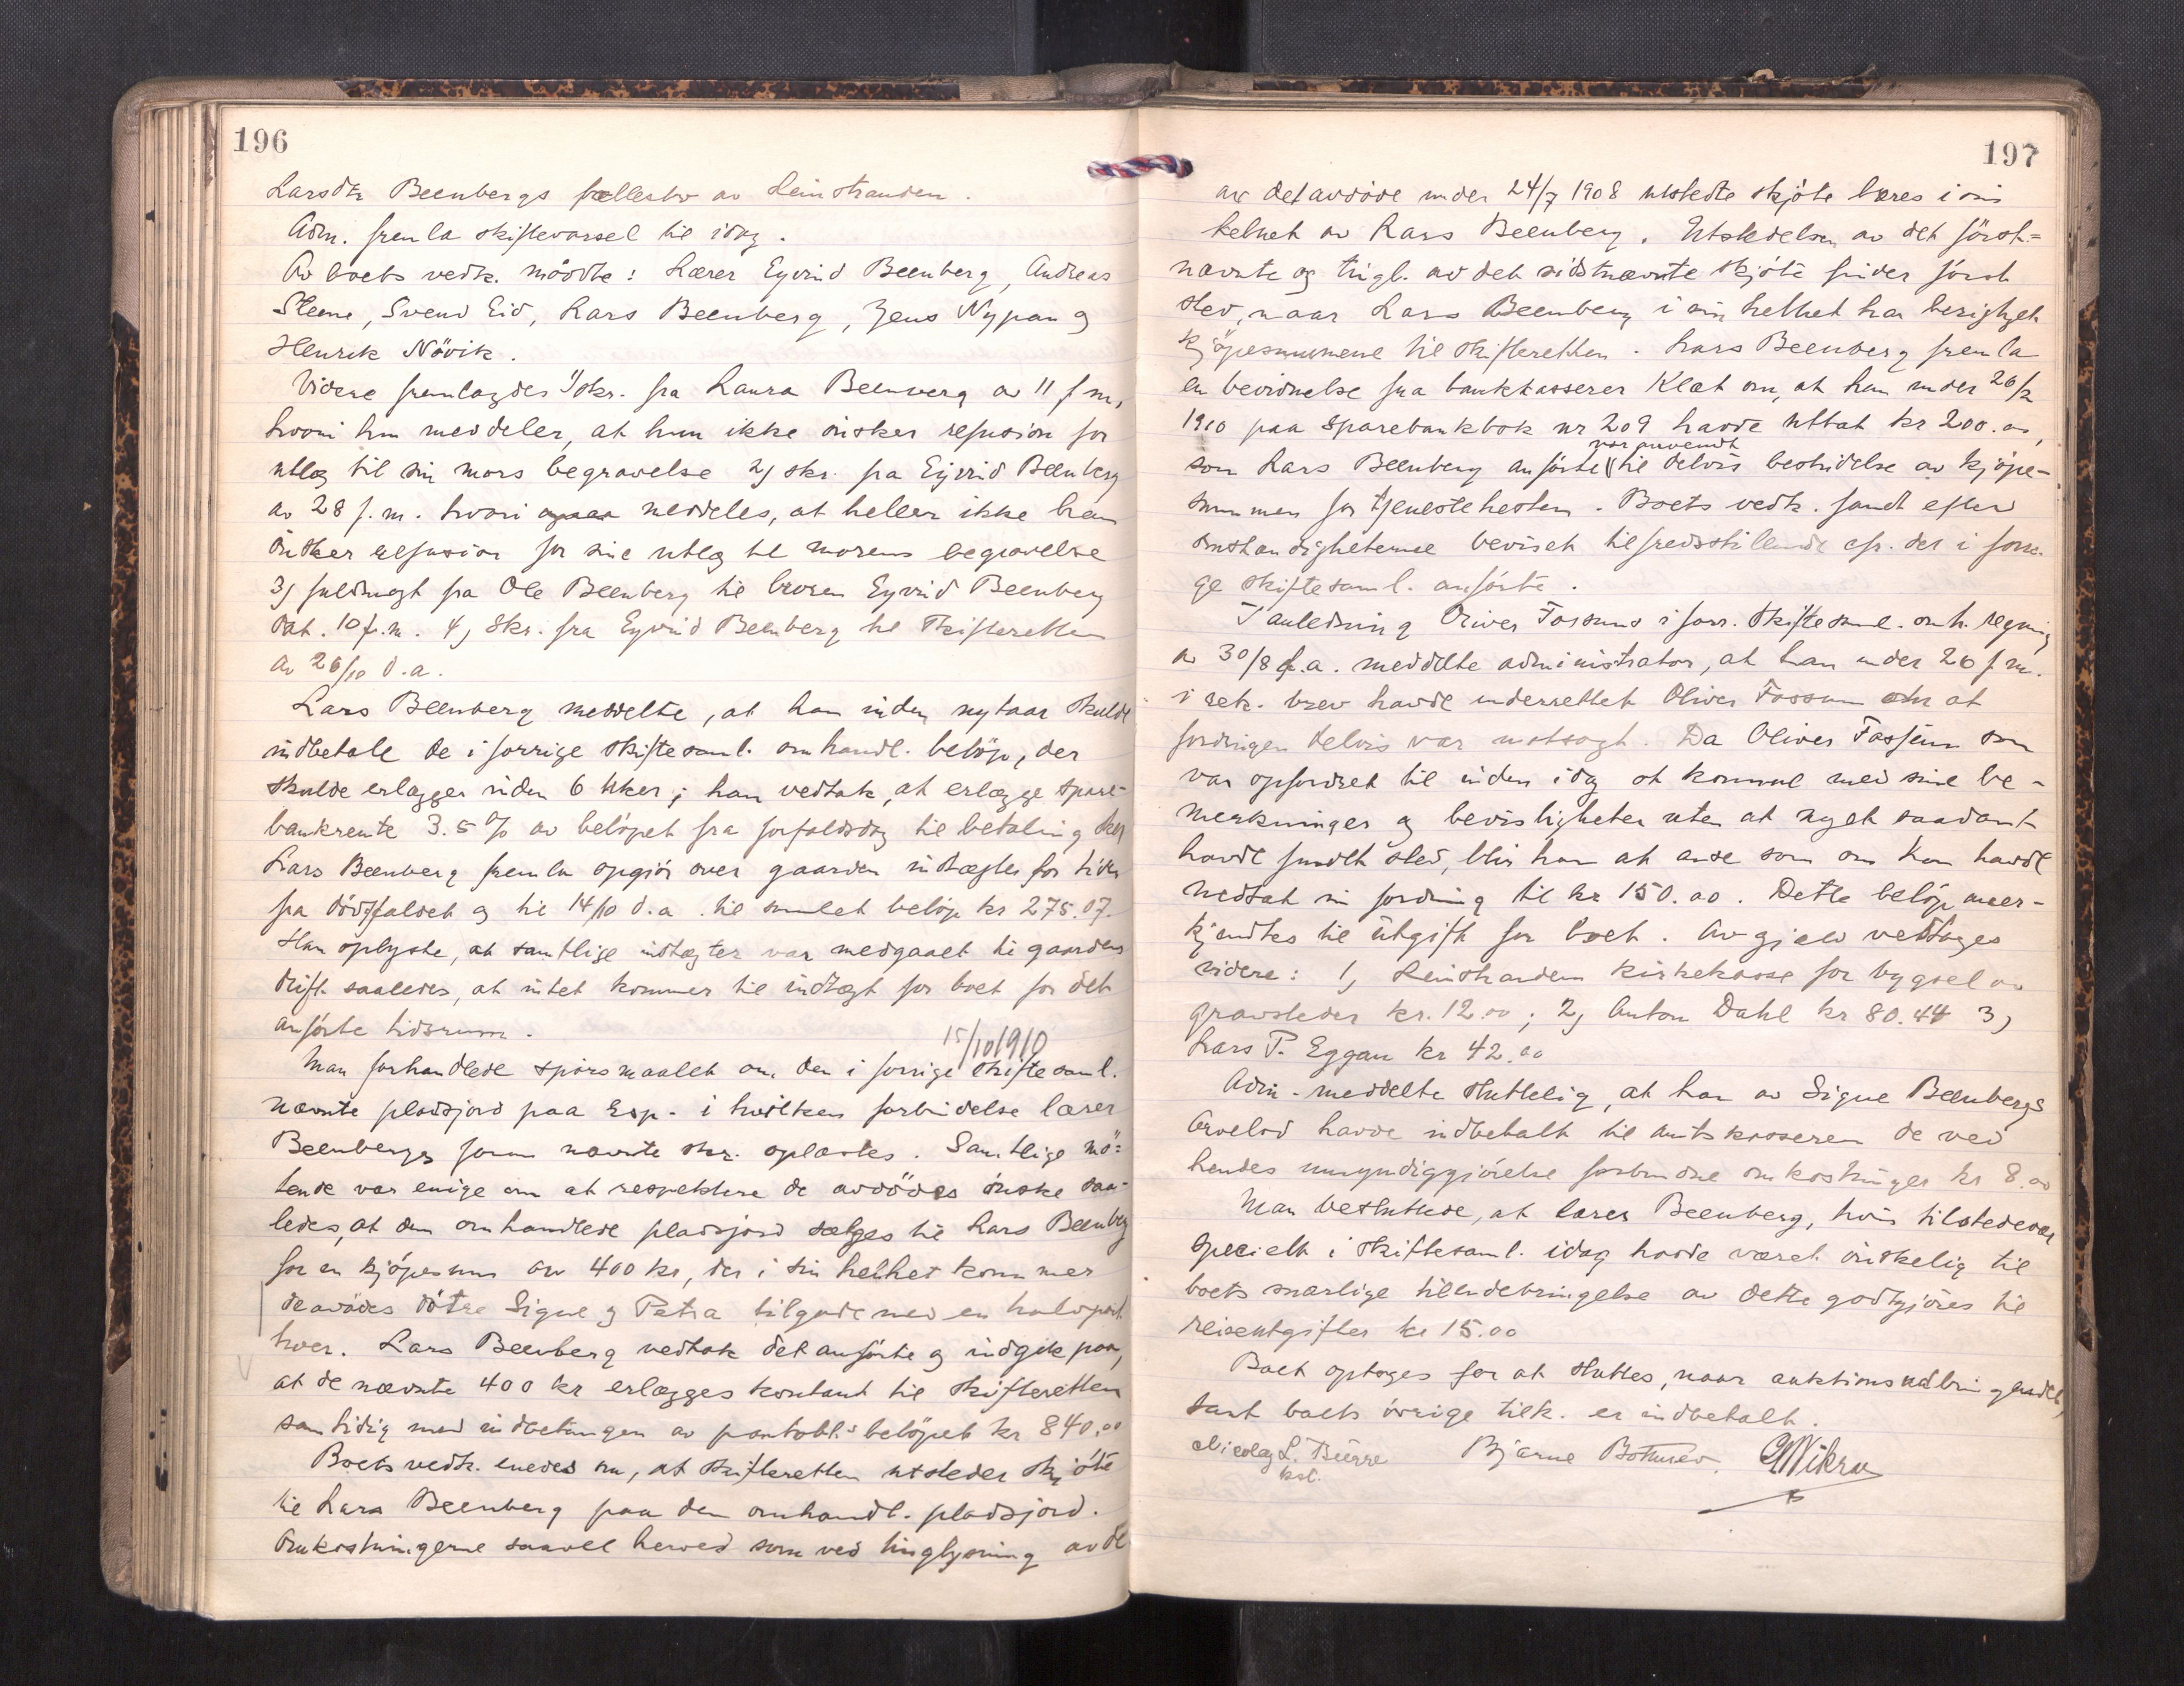 196
Larsdtr Beenbergs fællesbo av Leinstranden.
Adm. fremla skiftevarsel til idag.
Av boets vedk. møødte: Lærer Eyvind Beenberg, Andreas
Steene, Svend Eid, Lars Beenberg, Jens Nypan og
Henrik Növik.
Videre fremlagdes 1) skr. fra Laura Beenberg av 11 f.m.,
hvori hun meddeler, at hun ikke önsker refusion for
utlæg til sin mors begravelse 2) skr. fra Eyvind Beenberg
av 28 f.m. hvori meddeles, at heller ikke han
önsker refusion for sine utlæg til morens begravelse
3) fuldmagt fra Ole Beenberg til broren Eyvind Beenberg
dat. 10 f.m. 4) Skr. fra Eyvind Beenberg til Skifteretten
av 26/10 d.a.
Lars Beenberg meddelte, at han inden nytaar skulde
indbetale de i forrige skiftesaml. omhandl. beløp, der
skulde erlægges inden 6 uker; han vedtok, at erlægge spare-
bankrente 3.5 % av belöpet fra forfaldsdag til betaling sker
Lars Beenberg fremla opgjör over gaardens indtægter for tiden
fra dödsfaldet og til 14/10 d.a. til samlet beløp kr 275.07.
Han oplyste, at samtlige indtægter var medgaaet til gaardens
drift saaledes, at intet kommer til indtægt for boet for det
anförte tidsrum.
15/10 1910
Man forhandlede spörsmaalet om den i forrige skiftesaml.
nævnte pladsjord paa Esp. i hvilken forbindelse lærer
Beenbergs foran nævnte skr. oplæstes. Samtlige mö-
tende var enige om at respektere de avdödes önske saa-
ledes, at den omhandlede pladsjord sælges til Lars Beenberg
for en kjöpesum av 400 kr, der i sin helhet kommer
de avdödes dötre Signe og Petra tilgode med en halvpart
hver. Lars Beenberg vedtok det anförte og indgik paa,
at de nævnte 400 kr erlægges kontant til skifteretten
samtidig med indbetalingen av pantobl.s belöpet kr 840.00
Boets vedk. enedes om, at skifteretten utsteder skjöte
til Lars Beenberg paa den omhandl. pladsjord.
Omkostningerne saavel herved som ved tinglysning av de
197
av det avdöde under 24/7 1908 utstedte skjöte bæres i sin
helhet av Lars Beenberg. Utstedelsen av det först-
nævnte og tingl. av det sidstnævnte skjöte finder først
sted, naar Lars Beenberg i sin helhet har berigtiget
kjöpesummene til skifteretten. Lars Beenberg fremla
en bevidnelse fra bankkasserer Klæt om, at han under 26/2
1910 paa Sparebankbok nr 209 havde uttat kr 200.00,
var anvendt
som Lars Beenberg anförte til delvis bestridelse av kjöpe-
summen for tjenestehesten. Boets vedk. fandt efter
omstændigheterne beviset tilfredsstillende cfr. det i forri-
ge skiftesaml. anförte.
I anledning Oliver Fossums i forr. skiftesaml. omh. regning
av 30/8 f.a. meddelte administrator, at han under 26 f.m.
i rek. brev havde underrettet Oliver Fossum om at
fordringen delvis var motsagt. Da Oliver Fossum som
var opfordret til inden idag at komme med sine be-
merkninger og bevisligheter uten at noget saadant
havde fundet sted, blir han at anse som om han havde
nedsat sin fordring til kr 150.00. Dette belöp aner-
kjendtes til utgift for boet. Av gjeld vedtages
videre: 1) Leinstrandens kirkekasse for bygsel av
gravsteder kr. 12.00; 2) Anton Dahl kr 80.44 3)
Lars P. Eggan kr 42.00
Adm. meddelte sluttelig, at han av Signe Beenbergs
Arvelod havde indbetalt til amtskassereren de ved
hendes umyndiggjörelse forbundne omkostninger kr 8.00
Man besluttede, at lærer Beenberg, hvis tilstedevær
specielt i skiftesaml. idag havde været önskelig til
boets snarlige tilendebringelse av dette godtgjöres til
reiseutgifter kr 15.00
Boet optages for at sluttes, naar auktionsutbringendet,
samt boets övrige tilk. er indbetalt.
Nicolay L. Bierre Bjarne Bothner.
kst.